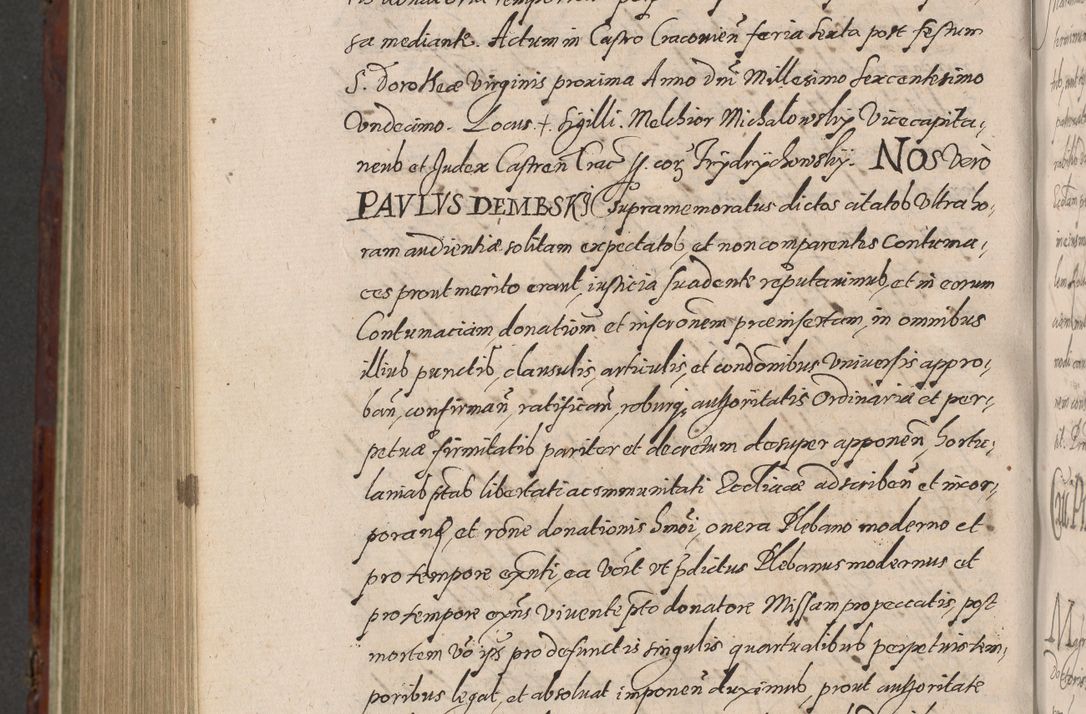 sa mediante. Actum in Castro Cracovień feria sexta post festum
S. Dorotheæ Virginis proxima Anno Dnī Millesimo sexcentesimo
Vndecimo. Locus + sigilli. Melchior Michałowskÿ Vicecapita,
neus et Judex Castreń Crac ss. cor Frÿdrÿchowskÿ. NOS Vero
PAVLVS DEMBSKJ supramemoratus dictos citatos Vltra ho,
ram audientiæ solitam expectatos, et non comparentes Contuma,
ces prout merito erant, iusticia suadente reputavimus, et in eorum
Contumaciam, donatiom et inscronem præinsertam, in omnibus
illius punctis, clausulis, articulis, et condōnibus Vniversis appro,
bań, confirmań, ratificań, roburq, authoritatis Ordinariæ et per,
petuæ firmitatis pariter et decretum desuper apponeń, hortu,
lanias pstas libertati ac immunitati Eccliacæ adscribeń et incor,
porań, et rōne donationis hmōi, onera Plebano moderno et
pro tempore exñti, ea Vōlt vt pdictus Plebanus modernus et
pro tempore exñs vivente psto donatore Missam pro peccatis, post
mortem Vō ijs pro defunctis singulis quartualibus perpetuis tem,
poribus legat, et absolvat imponeń duximus, prout authoritate